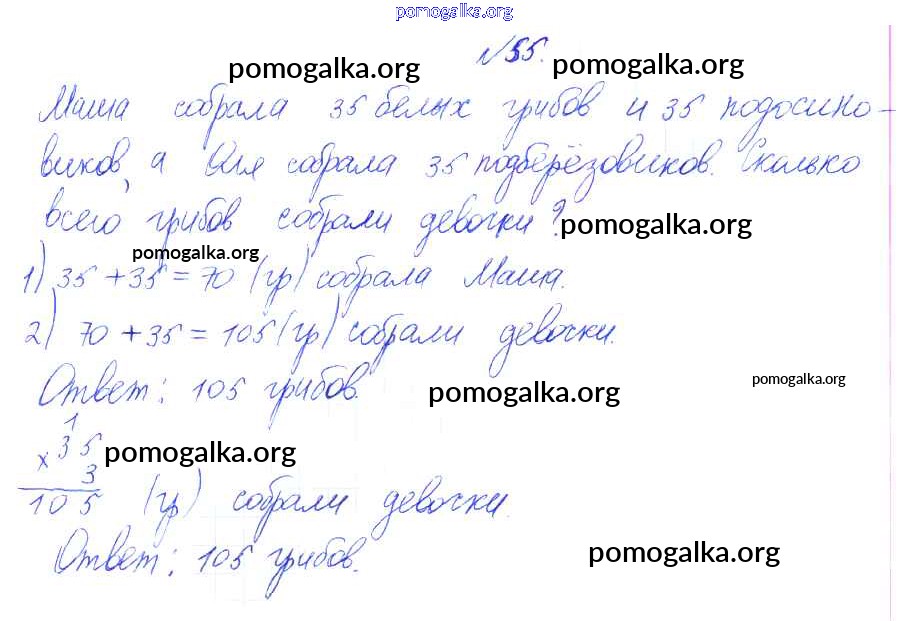 pomogalka.org
№55.
pomogalka.org pomogalka.org
Маша собрала 35 белых грибов и 35 подосино-
виков, а Оля собрала 35 подберёзовиков. Сколько
всего грибов собрали девочки? pomogalka.org
pomogalka.org
1) 35 + 35 = 70 (гр) собрала Маша.
2) 70 + 35 = 105 (гр) собрали девочки.
pomogalka.org
Ответ: 105 грибов. pomogalka.org
1
× 35 pomogalka.org
3
105 (гр) собрали девочки.
Ответ: 105 грибов. pomogalka.org